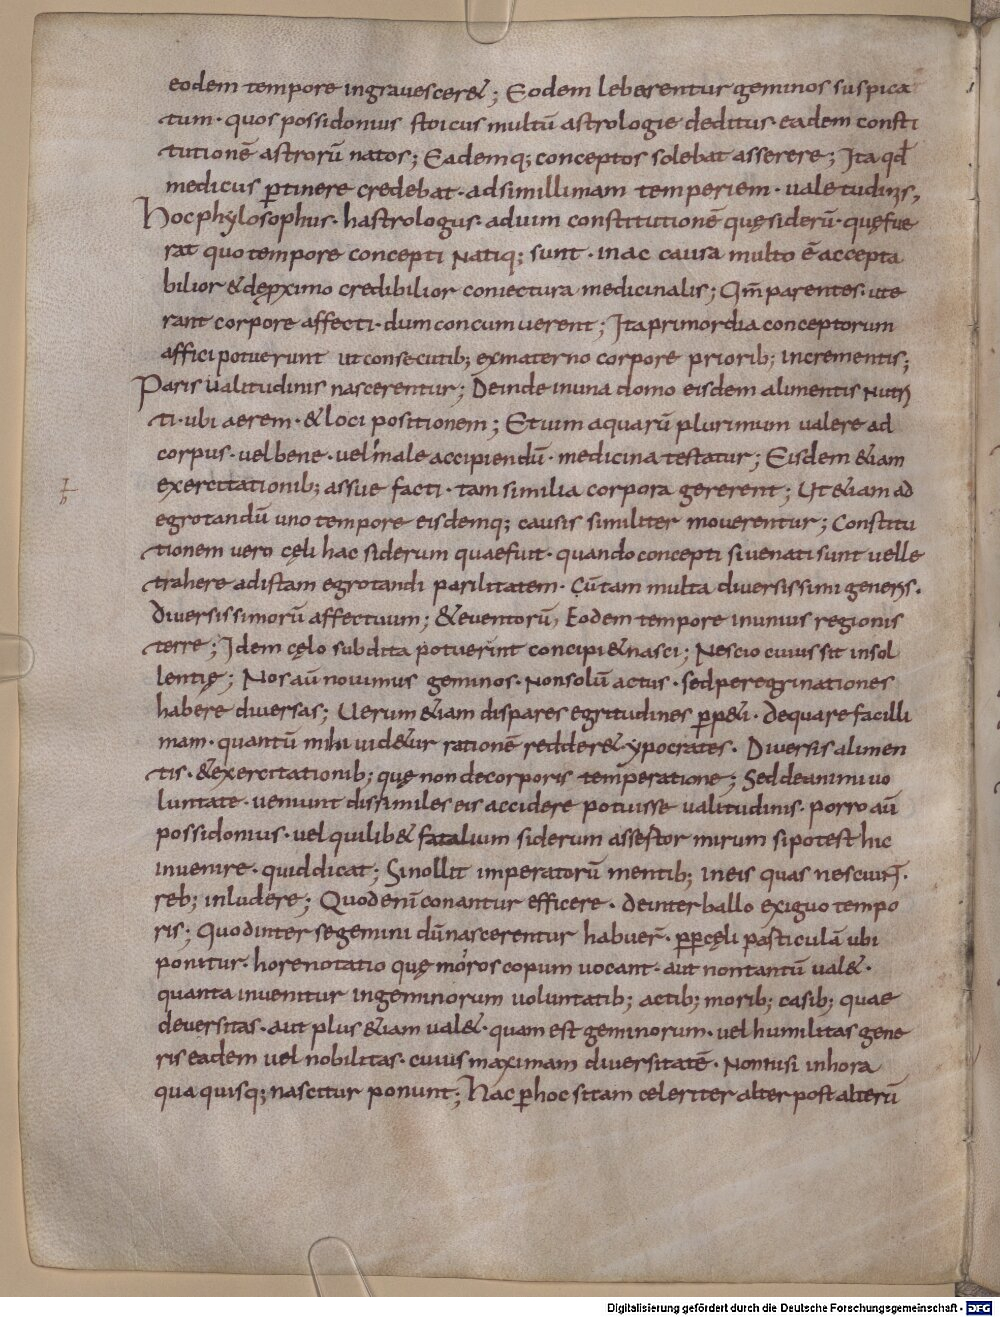 eodem tempore ingrauescer&; Eodem leberentur geminos suspica
tum· quos possidonius stoicus multū astrologie deditus· eadem consti
tutionē astrorū natos; Eademq; conceptos solebat asserere; Ita qđ
medicus ꝑtinere credebat· adsimillimam temperiem· ualetudinis,
Hoc phylosophus· hastrologus· aduim constitutionē quę siderū· quę fue
rat quo tempore concepti Natiq; sunt· inac causa multo ē accepta
bilior & de ꝓximo credibilior coniectura medicinalis; Qm̄ parentes· ute
rant corpore affecti· dum concumuerent; Ita primordia conceptorum
affici potuerunt ut consecutib; ex materno corpore priorib; incrementis;
Paris ualitudinis nascerentur; Deinde in una domo eisdem alimentis Nutri
ti· ubi aerem· & loci positionem; Et uim aquarū plurimum ualere ad
corpus· uel bene· uel male accipiendū· medicina testatur; Eisdem &iam
exercitationib; assue facti· tam similia corpora gererent; Ut &iam ad
egrotandū uno tempore eisdemq; causis similiter mouerentur; Constitu
tionem uero cęli hac siderum quae fuit· quando concepti siue nati sunt uelle
trahere ad istam egrotandi parilitatem· Cū tam multa diuersissimi generis·
Diuersissimorū affectuum; & euentorū, Eodem tempore in unius regionis
terre; Idem cęlo subdita potuerint concipi & nasci; Nescio cuius sit insol
lentię; Nos aū nouimus geminos· Non solū actus· sed peregrinationes
habere diuersas; Uerum &iam dispares egritudines ꝑp&i· De qua re facilli
mam· quantū mihi uid&ur rationē redder& ypocrates· Diuersis alimen
tis· & exercitationib; quę non de corporis temperatione; Sed de animi uo
luntate· ueniunt dissimiles eis accidere potuisse ualitudinis· porro aū
possidonius· uel quilib& fatalium siderum assertor mirum si potest hic
inuenire· quid dicat; Si nollit imperatorū mentib; in eis quas nesciunt·
reb; inludere; Quod enī conantur efficere· de interballo exiguo tempo
ris; Quod inter se gemini dū nascerentur habuer̄· ꝓp cęli pasticulā ubi
ponitur· hore notatio quę moros copum uocant· aut non tantū ual&·
quanta inuenitur in geminorum uoluntatib; actib; morib; casib; quae
deuersitas· aut plus &iam ual&· quam est geminorum· uel humilitas gene
ris eadem uel nobilitas· cuius maximam diuersitatē· Non nisi in hora
qua quisq; nascitur ponunt; Hac ꝑ hoc si tam celeriter alter post alterū
Digitalisierung gefördert durch die Deutsche Forschungsgemeinschaft - DFG